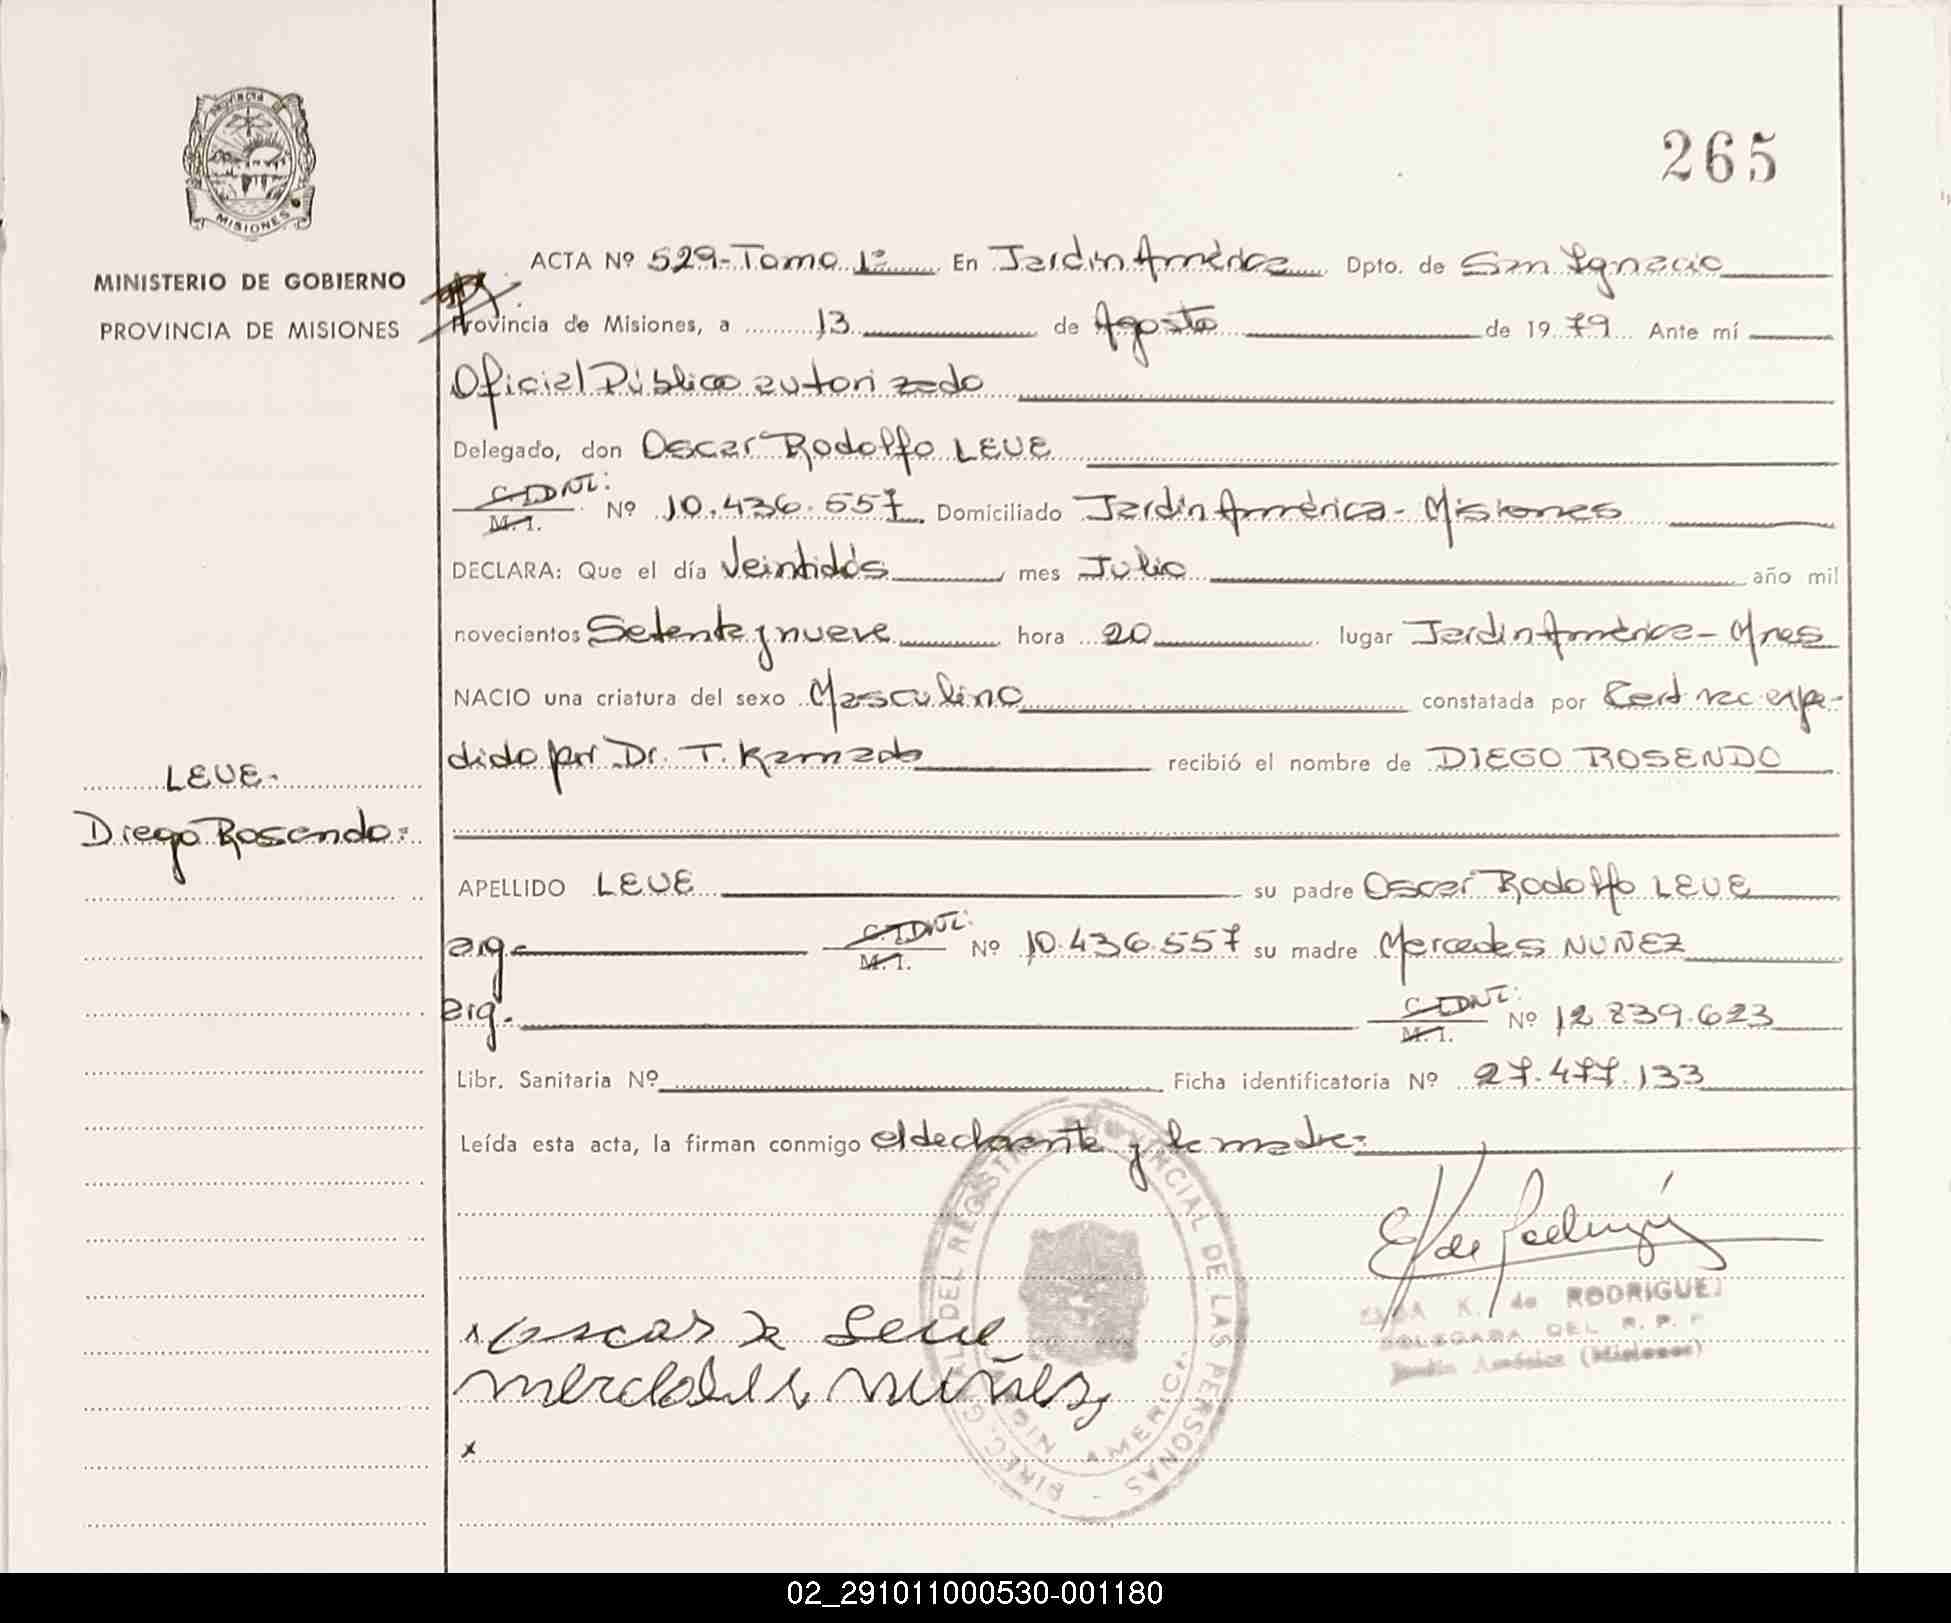 PROVINCIA
MISIONES
MINISTERIO DE GOBIERNO
PROVINCIA DE MISIONES
LEUE.
Diego Rosendo:
265
ACTA Nº 529-Tomo 1º En Jardín América Dpto. de San Ignacio
Provincia de Misiones, a 13 de Agosto de 1979 Ante mí
Oficial Público autorizado
Delegado, don Oscar Rodolfo LEUE
C.I. DNI: M.I. Nº 10.436.557 Domiciliado Jardín América - Misiones
DECLARA: Que el día Veintidós mes Julio año mil
novecientos Setenta y nueve hora 20 lugar Jardín América - Mnes
NACIO una criatura del sexo Masculino constatada por Cert nac expe-
dido por Dr. T. Kamada recibió el nombre de DIEGO ROSENDO
APELLIDO LEUE su padre Oscar Rodolfo LEUE
arg. C.I. DNI: M.I. Nº 10.436.557 su madre Mercedes NUÑEZ
arg. C.I. DNI: M.I. Nº 12.839.623
Libr. Sanitaria Nº Ficha identificatoria Nº 27.477.133
Leída esta acta, la firman conmigo el declarante y la madre:
E K de Rodriguez
K. de RODRIGUEZ
DELEGADA DEL R. P. P.
Jardín América (Misiones)
x Oscar R Leue
Mercedes Nuñez
x
DIREC. GRAL DEL REGISTRO PROVINCIAL DE LAS PERSONAS -
JARDIN AMERICA
02_291011000530-001180